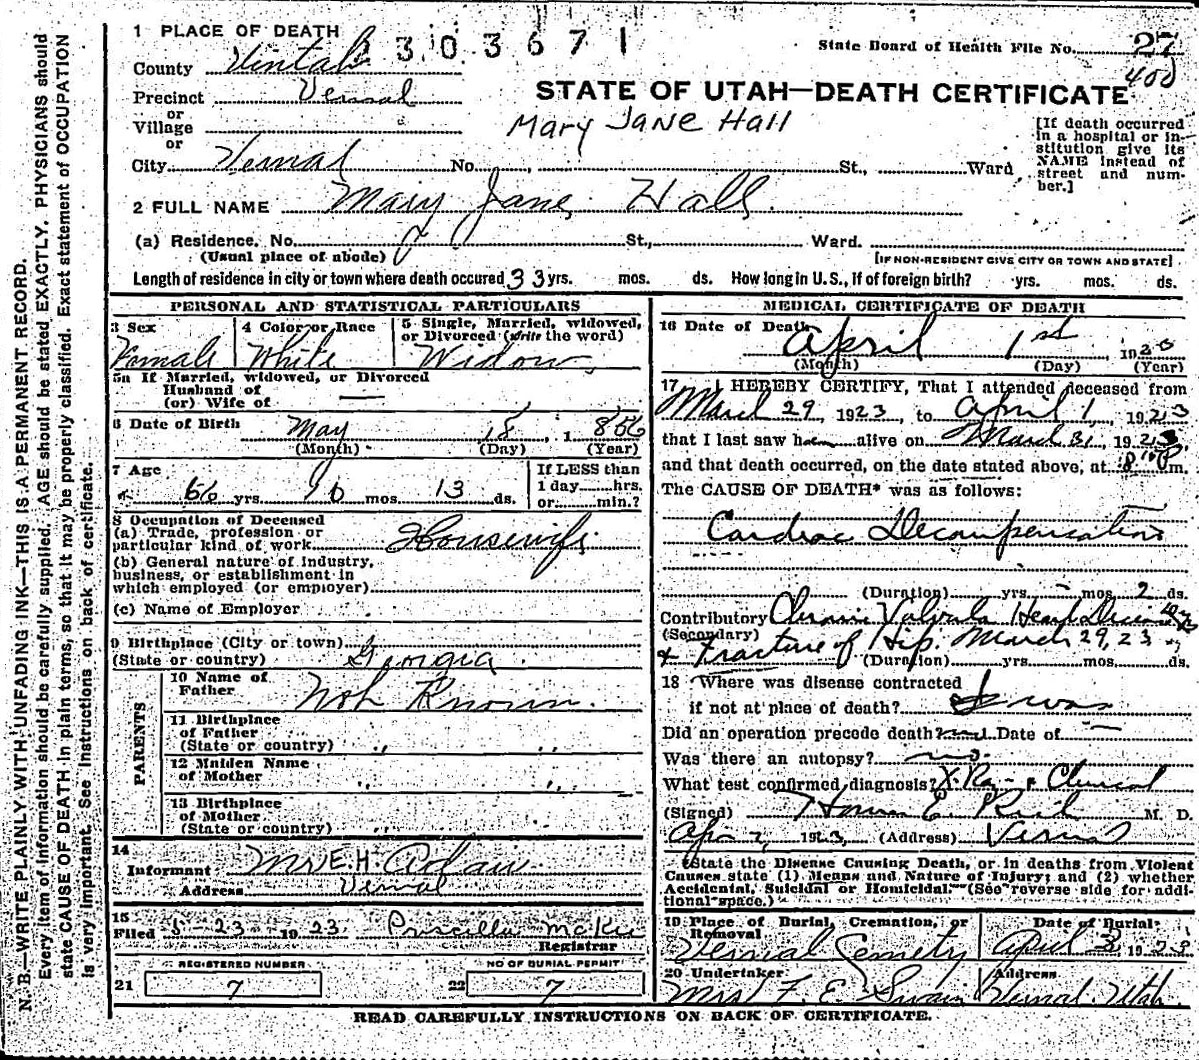 N. B.—WRITE PLAINLY WITH UNFADING INK—THIS IS A PERMANENT RECORD.
Every item of information should be carefully supplied. AGE should be stated EXACTLY. PHYSICIANS should
state CAUSE OF DEATH in plain terms, so that it may be properly classified. Exact statement of OCCUPATION
is very important. See instructions on back of certificate.
1 PLACE OF DEATH
303671
State Board of Health File No. 27
400
County Uintah
Precinct Vernal
or
Village
or
City Vernal No. St., Ward
STATE OF UTAH—DEATH CERTIFICATE
Mary Jane Hall
[If death occurred
in a hospital or in-
stitution give its
NAME instead of
street and num-
ber.]
2 FULL NAME Mary Jane Hall
(a) Residence. No. St., Ward.
(Usual place of abode) [IF NON-RESIDENT GIVE CITY OR TOWN AND STATE]
Length of residence in city or town where death occured 33 yrs. mos. ds. How long in U.S., if of foreign birth? yrs. mos. ds.
PERSONAL AND STATISTICAL PARTICULARS
3 Sex
Female
4 Color or Race
White
5 Single, Married, widowed,
or Divorced (write the word)
Widow
5a If Married, widowed, or Divorced
Husband of
(or) Wife of
6 Date of Birth May 18, 1856
(Month) (Day) (Year)
7 Age 66 yrs. 10 mos. 13 ds.
If LESS than
1 day hrs.
or min.?
8 Occupation of Deceased
(a) Trade, profession or
particular kind of work Housewife
(b) General nature of industry,
business, or establishment in
which employed (or employer)
(c) Name of Employer
9 Birthplace (City or town)
(State or country) Georgia
PARENTS
10 Name of
Father Not Known.
11 Birthplace
of Father
(State or country) " "
12 Maiden Name
of Mother " "
13 Birthplace
of Mother
(State or country) " "
14
Informant Mrs E.H.
Address Vernal
15
Filed 5-23 1923. Priscilla McKee
Registrar
REGISTERED NUMBER
21 7
NO OF BURIAL PERMIT
22 7
MEDICAL CERTIFICATE OF DEATH
16 Date of Death April 1st, 19
(Month) (Day) (Year)
17 I HEREBY CERTIFY, That I attended deceased from
March 29, 1923, to April 1, 1923
that I last saw h alive on March 31, 1923
and that death occurred, on the date stated above, at 8 m.
The CAUSE OF DEATH* was as follows:
Cardiac Decompensation
(Duration) yrs. mos. 2 ds.
Contributory Chronic Valvular Heart Disease
(Secondary)
& Fracture of Hip. March 29, 23
(Duration) yrs. mos. ds.
18 Where was disease contracted
if not at place of death?
Did an operation precede death? Date of —
Was there an autopsy? no.
What test confirmed diagnosis? X Ray & Clinical
(Signed) M. D.
Apr 2, 1923, (Address) Vernal
*State the Disease Causing Death, or in deaths from Violent
Causes state (1) Means and Nature of Injury; and (2) whether
Accidental, Suicidal or Homicidal. (See reverse side for addi-
tional space.)
19 Place of Burial, Cremation, or
Removal
Vernal Cemetery
Date of Burial
April 3 1923
20 Undertaker
Mrs F. E. Swain
Address
Vernal Utah.
READ CAREFULLY INSTRUCTIONS ON BACK OF CERTIFICATE.